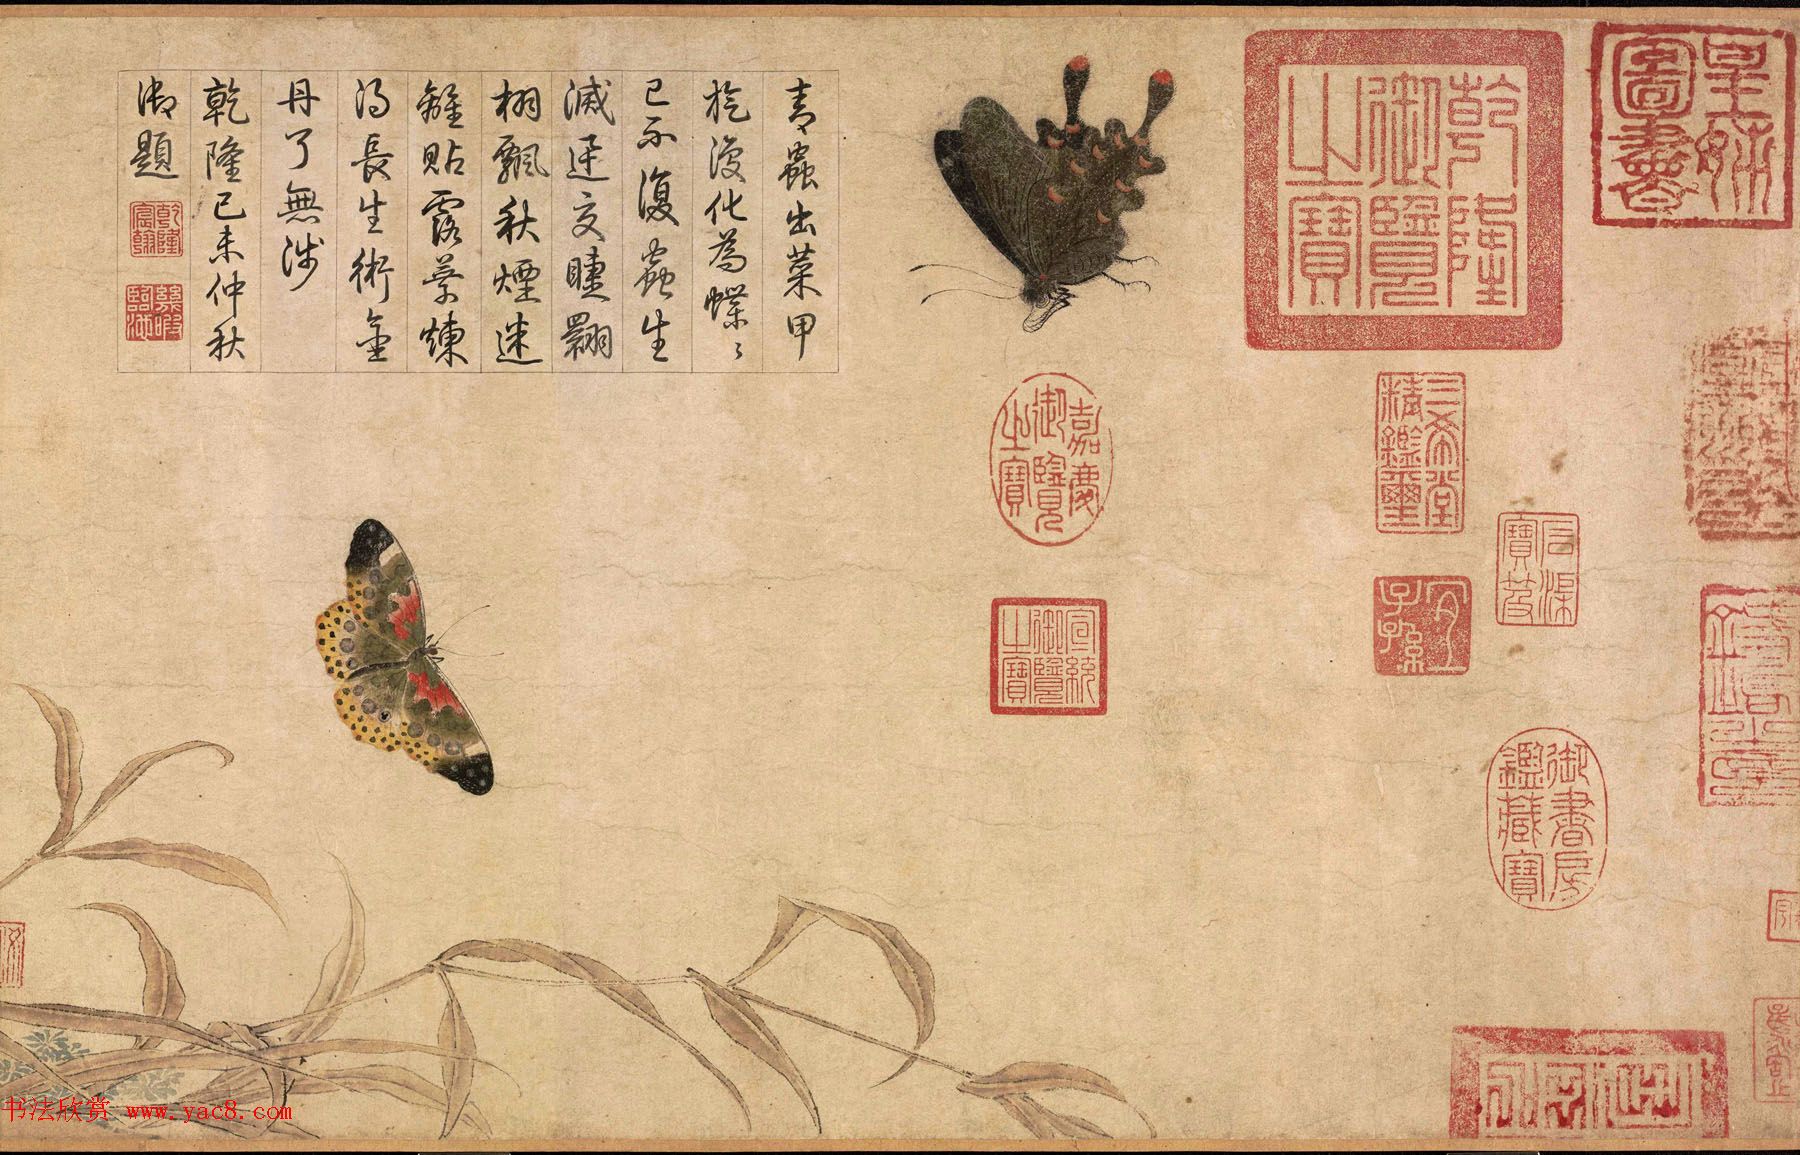 皇姊圖書
乾隆御覽之寶
三希堂精鑑璽
石渠寶笈
宜子孫
御書房鑑藏寶
嘉慶御覽之寶
宣統御覽之寶
青蟲出菜甲
旋復化為蝶〻
已不復蟲生
滅逆交睫翾
栩飄秋煙迷
離貼露葉煉
得長生術金
丹了無涉
乾隆己未仲秋
御題
乾隆宸翰
幾暇臨池
书法欣赏 www.yac8.com